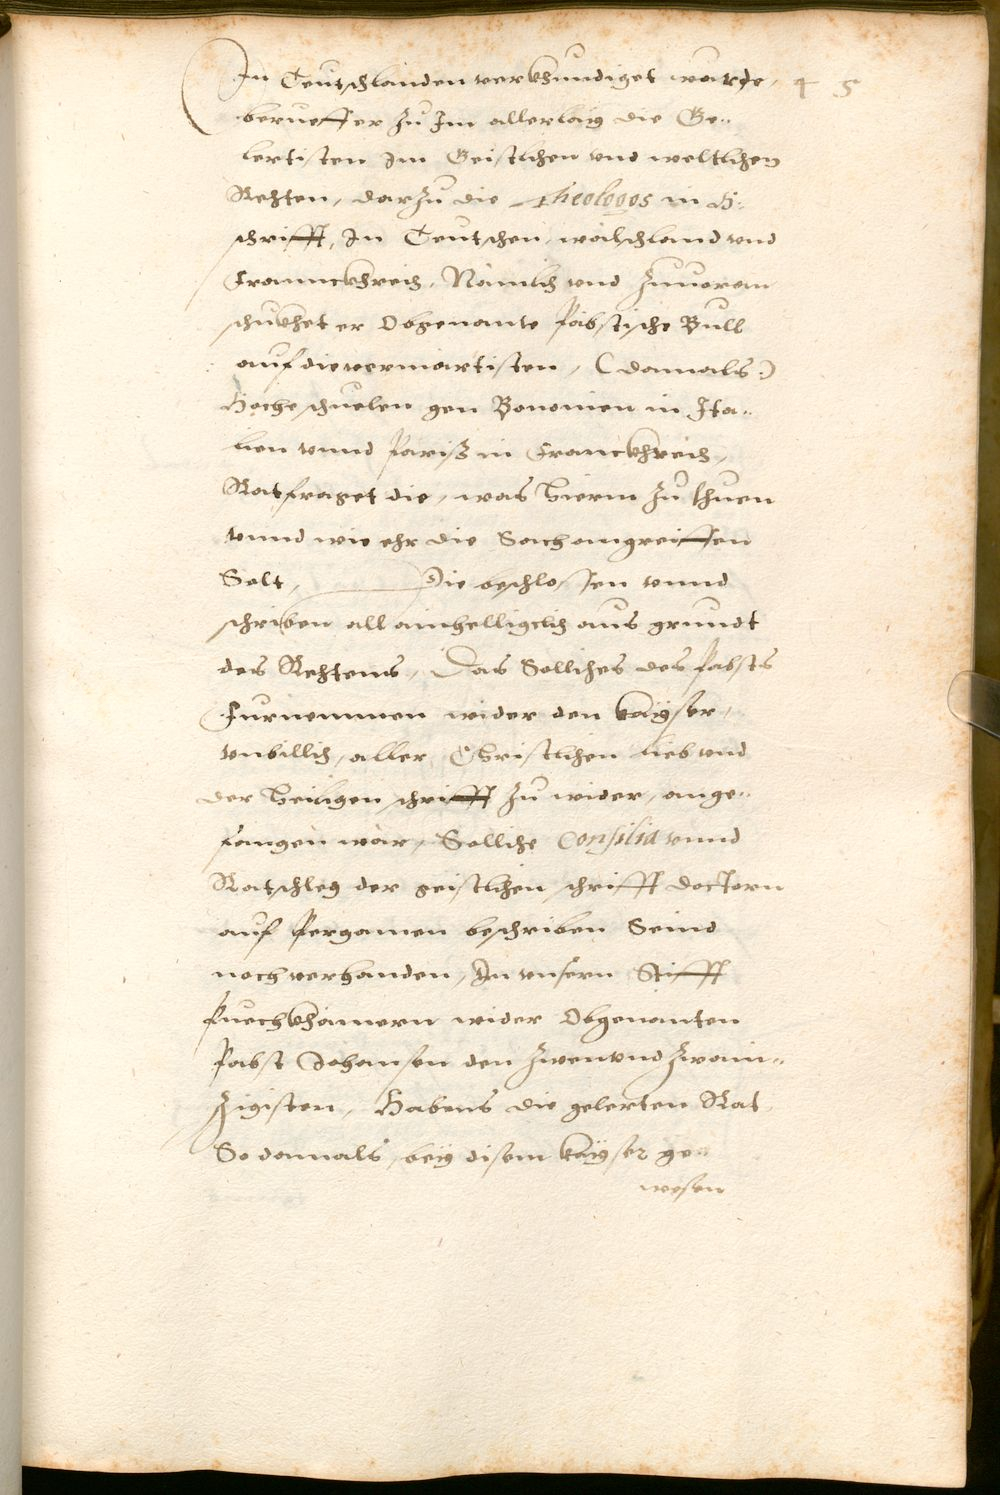 In Teutschlanden verkhundiget wurde, 45
berueffer zu Im allerlaÿ die Ge=
lertisten Im Geistlichen vnd weltlichen
Rechten, darzu die Theologos in H.
schrifft, In Teutschen, wälschland vnd
Frannckhreich, Nämlich vnd zuuoran
schukhet er Obgenante Päbstische Bull
auf die vermärtisten, (damals:)
Hoche schuelen gen Bononien in Ita=
lien vnnd Pariß in Franckhreich,
Ratfraget die, was hierin zu thuen
vnnd wie ehr die Sach angreiffen
Solt, Die beschlossen vnnd
schriben all ainhelligclich aus grundt
des Rechtens, Das Solliches des Pabsts
Furnemmen wider den kaÿser,
vnbillich, aller Christlichen lieb vnd
der heiligen schrifft zu wider, ange=
fangen wär, Solliche Consilia vnnd
Ratschleg der geistlichen schrifft doctorn
auf Pergamen beschriben Seind
noch verhanden, In vnsern Stifft
Puechkhamern wider Obgenanten
Pabst Johansen den zwenvnd zwain=
zigisten, Habens die gelerten Rat
So damals, beÿ disem kaÿser ge=
wesen